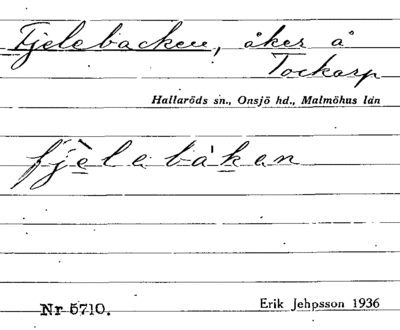 Fjelebacken, åker å
Tockarp
Hallaröds sn., Onsjö hd., Malmöhus län
fjèlebákan
Nr 5710.
Erik Jehpsson 1936